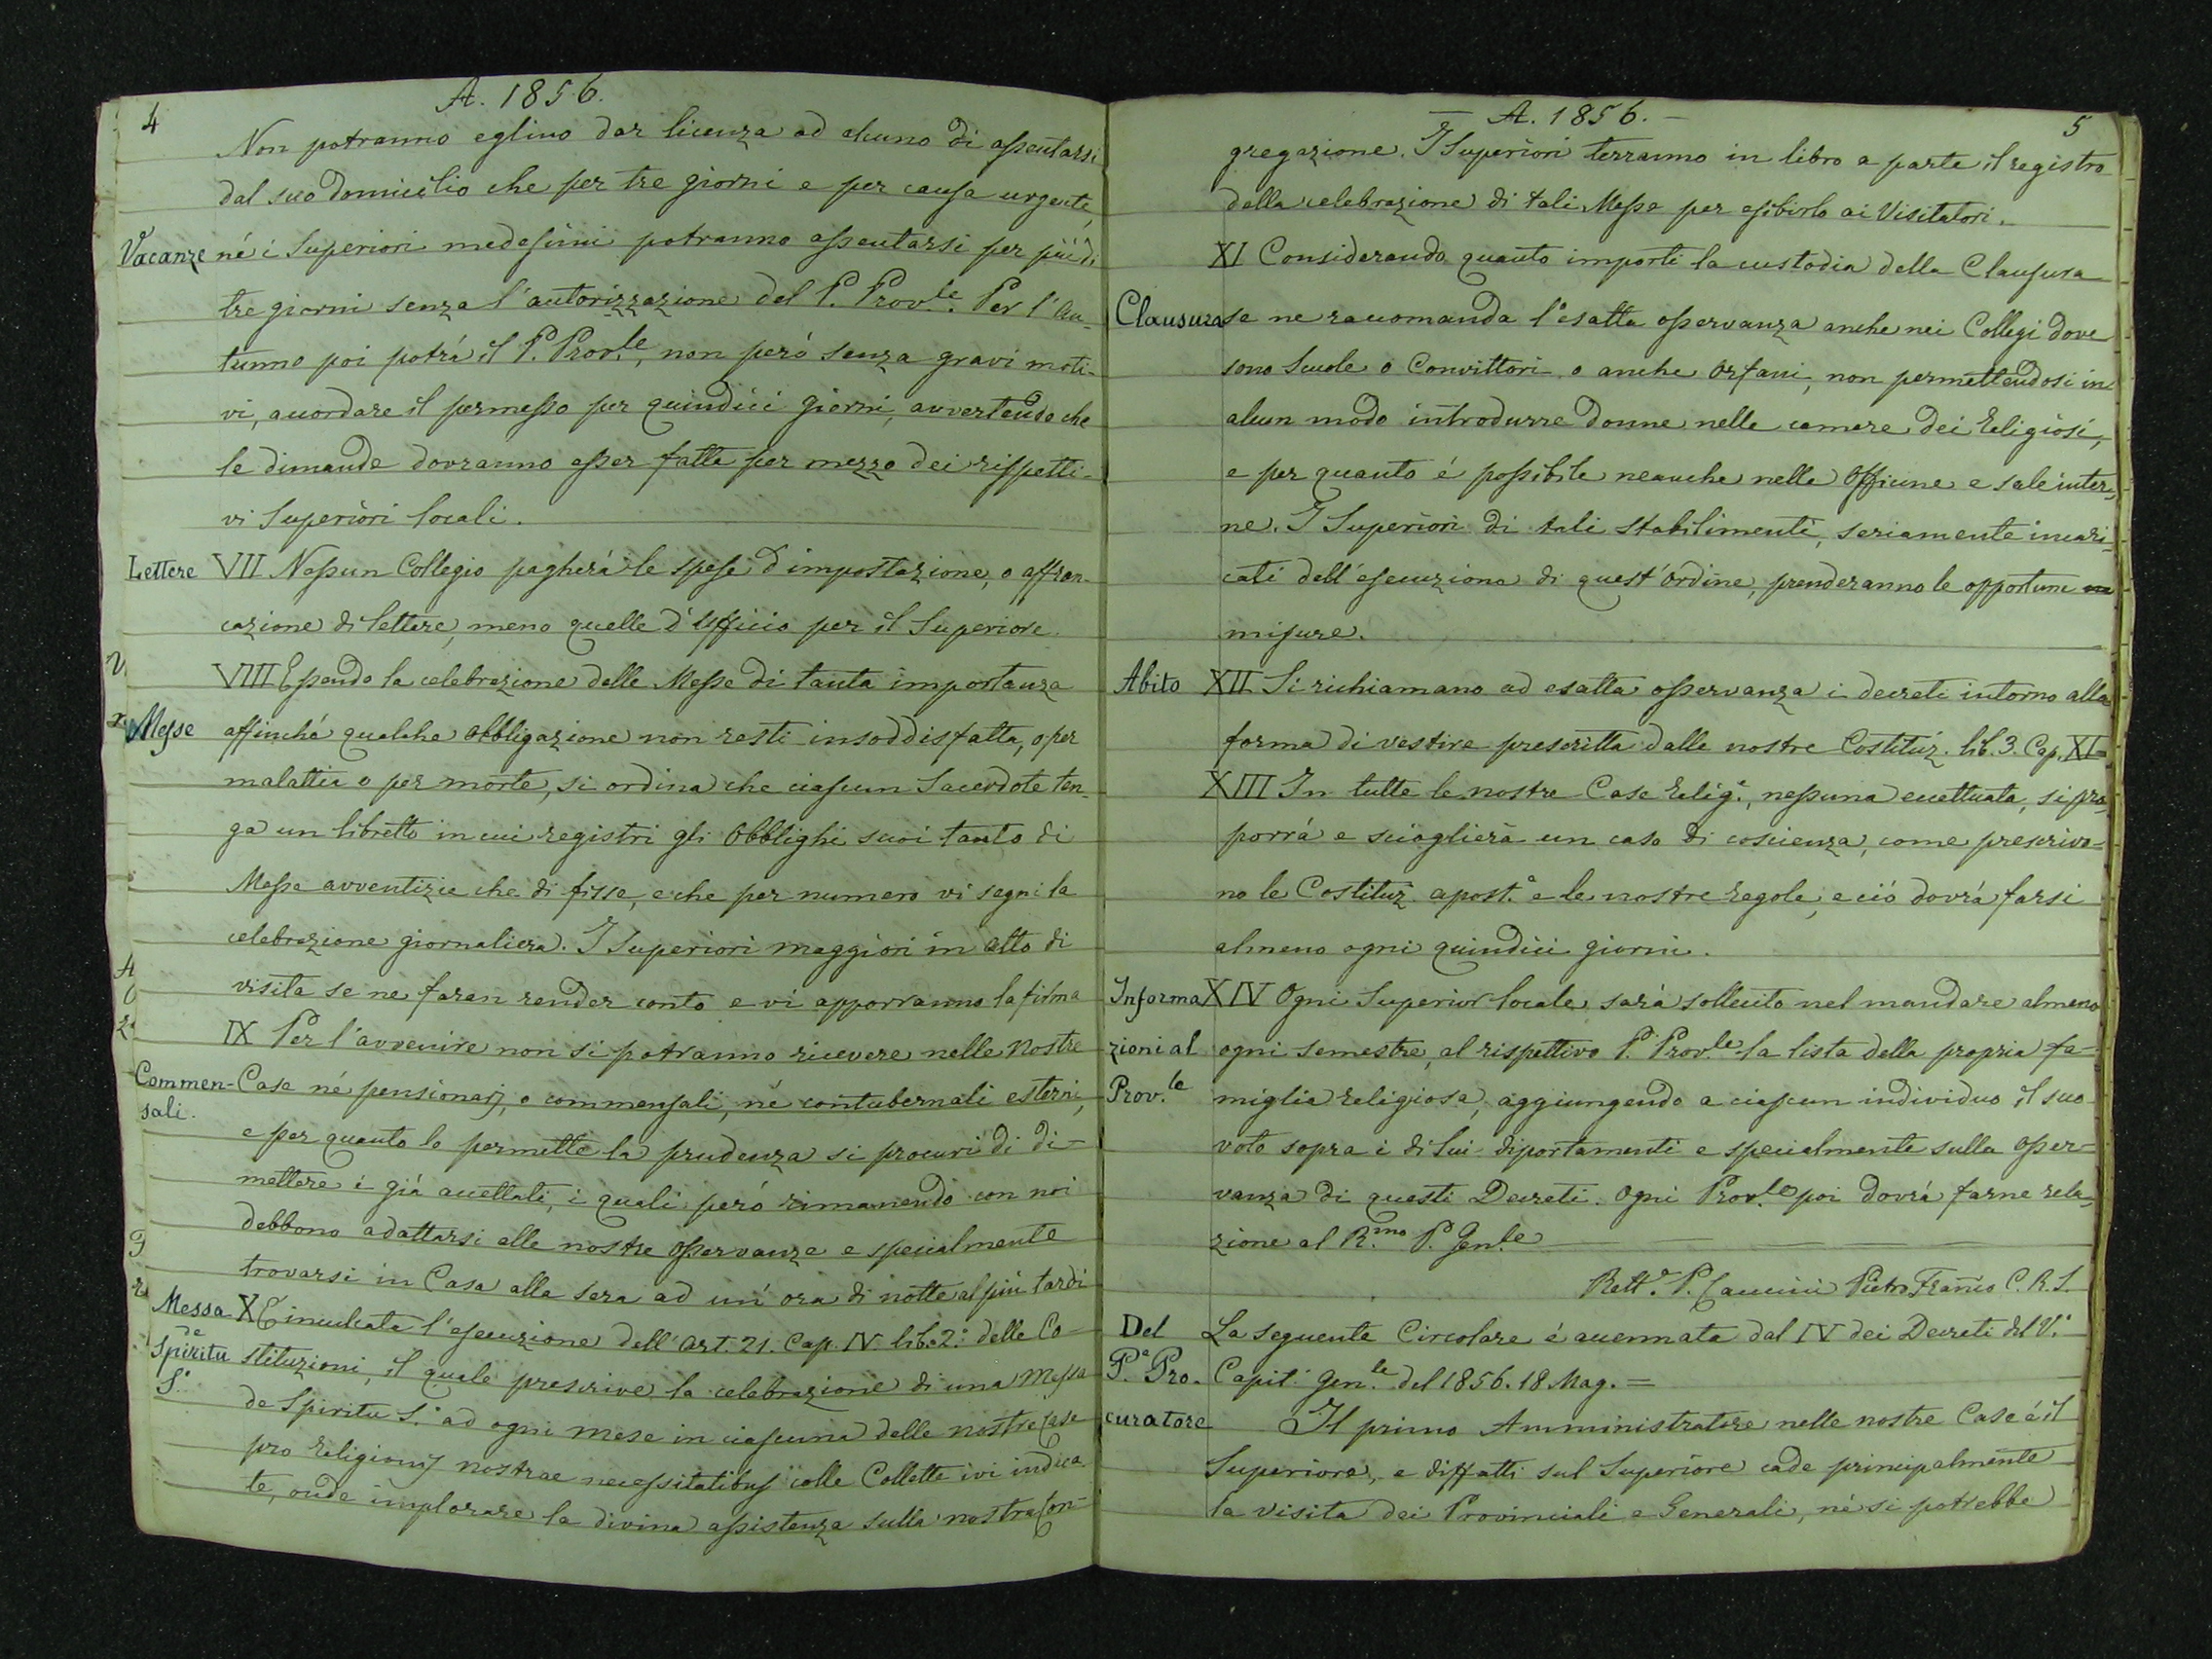 4
A. 1856.
Non potranno eglino dar licenza ad alcuno di assentarsi
dal suo domicilio che per tre giorni e per causa urgente,
Vacanze né i Superiori medesimi potranno assentarsi per più di
tre giorni senza l'autorizzazione del P. Prov.le. Per l'Au-
tunno poi potrá il P. Prov.le, non peró senza gravi moti-
vi, accordare il permesso per quindici giorni, avvertendo che
le dimande dovranno esser fatte per mezzo dei rispetti-
vi Superiori locali.
Lettere VII Nessun Collegio pagherá le spese d'impostazione, o affran-
cazione di lettere, meno quelle d'Ufficio per il Superiore.
VIII Essendo la celebrazione delle Messe di tanta importanza
Messe affinché qualche obbligazione non resti insoddisfatta, o per
malattia o per morte, si ordina che ciascun Sacerdote ten-
ga un libretto in cui registri gli Obblighi suoi tanto di
Messe avventizie che di fisse, e che per numero vi segni la
celebrazione giornaliera. I Superiori maggiori in atto di
visita se ne faran render conto e vi apporranno la firma
IX Per l'avvenire non si potranno ricevere nelle Nostre
Commen- Case né pensionarj, o commensali, né contubernali esterni,
sali.
e per quanto lo permette la prudenza si procuri di di-
mettere i giá accettati, i quali peró rimanendo con noi
debbono adattarsi alle nostre osservanze e specialmente
trovarsi in Casa alla sera ad un' ora di notte al piú tardi
Messa X É inculcata l'esecuzione dell' Art. 21. Cap. IV. lib. 2.° delle Co-
de Spiritu stituzioni, il quale prescrive la celebrazione di una Messa
S.° de Spiritu S.° ad ogni mese in ciascuna delle nostre Case
pro Religionis nostrae necessitatibus colle Collette ivi indica
te, onde implorare la divina assistenza sulla nostra Con-
— A. 1856. —
5
gregazione. I Superiori terranno in libro a parte il registro
della celebrazione di tali Messe per esibirlo ai Visitatori.
XI Considerando quanto importi la custodia della Clausura
Clausura se ne raccomanda l'esatta osservanza anche nei Collegi dove
sono Scuole o Convittori o anche Orfani, non permettendosi in
alcun modo introdurre donne nelle camere dei Religiosi,
e per quanto é possibile neanche nelle Officine e sale inter-
ne. I Superiori di tali stabilimenti, seriamente incari-
cati dell'esecuzione di quest'Ordine, prenderanno le opportune
misure.
Abito XII Si richiamano ad esatta osservanza i decreti intorno alla
forma di vestire prescritta dalle nostre Costituz. lib. 3. Cap. XI=
XIII In tutte le nostre Case Relig.e, nessuna eccettuata, si pro-
porrá e scioglierà un caso di coscienza, come prescrivo-
no le Costituz. apost.e e le nostre Regole, e ció dovrá farsi
almeno ogni quindici giorni.
Informa XIV Ogni Superior locale sará sollecito nel mandare almeno
zioni al ogni semestre, al rispettivo P. Prov.le la lista della propria fa-
Prov.le miglia religiosa, aggiungendo a ciascun individuo il suo
voto sopra i di lui diportamenti e specialmente sulla osser-
vanza di questi Decreti. Ogni Prov.le poi dovrá farne rela-
zione al R.mo P. Gen.le
Rett.e P. Pietro Franco C. R. S.
Del La seguente Circolare é accennata dal IV dei Decreti del V.e
P.e Pro- Capit. Gen.le del 1856. 18 Mag. =
curatore Il primo Amministratore nelle nostre Case é il
Superiore, e diffatti sul Superiore cade principalmente
la visita dei Provinciali e Generali, né si potrebbe